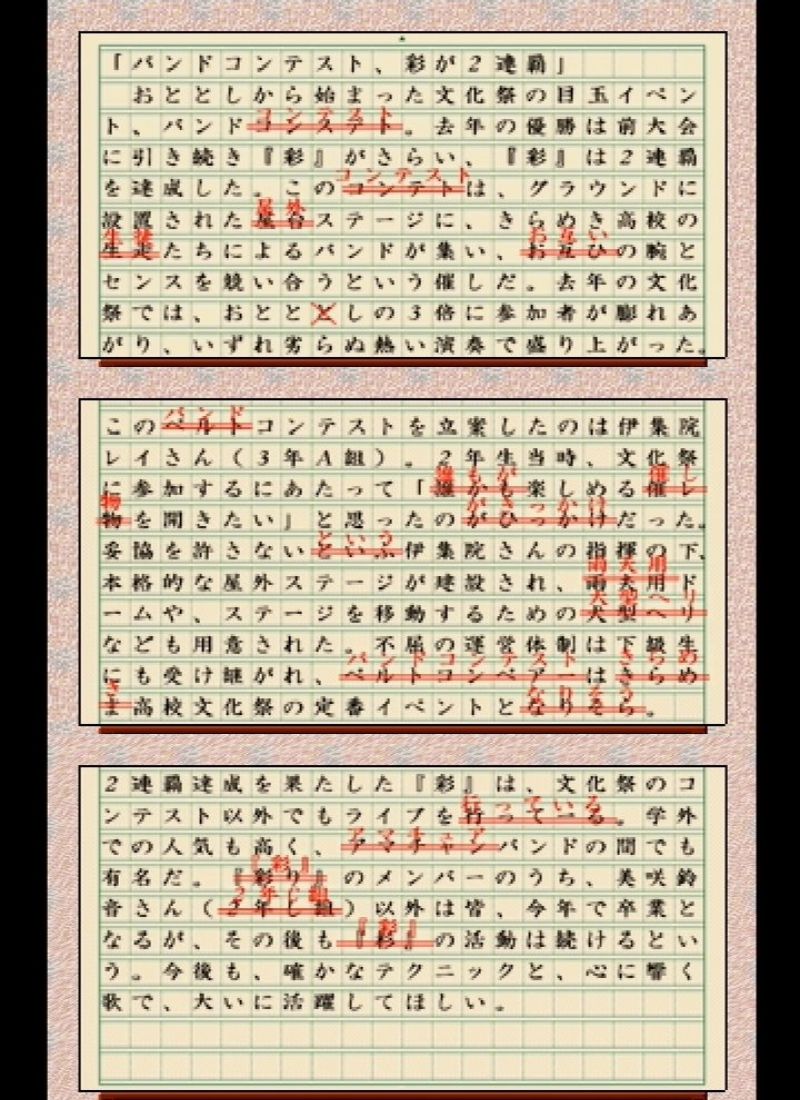 「バンドコンテスト、彩が2連覇」
おととしから始まった文化祭の目玉イベン
コンテスト
ト、バンドコンステト。去年の優勝は前大会
に引き続き『彩』がさらい、『彩』は2連覇
コンテスト
を達成した。このコンテトは、グラウンドに
屋外
設置された屋台ステージに、きらめき高校の
生徒 お互い
生走たちによるバンドが集い、お互ひの腕と
センスを競い合うという催しだ。去年の文化
祭では、おとととしの3倍に参加者が膨れあ
がり、いずれ劣らぬ熱い演奏で盛り上がった。
バンド
このベルトコンテストを立案したのは伊集院
レイさん（3年A組）。2年生当時、文化祭
誰もが 催し
に参加するにあたって「誰かも楽しめる催レ
物 がきっかけ
物を開きたい」と思ったのがひっかけだった。
という
妥協を許さないといふ伊集院さんの指揮の下、
雨天用
本格的な屋外ステージが建設され、雨夫用ド
大型ヘリ
ームや、ステージを移動するための犬型ヘリ
なども用意された。不屈の運営体制は下級生
バンドコンテスト きらめ
にも受け継がれ、ベルトコンベアーはきらめ
き なりそう
ま高校文化祭の定番イベントとなりそら。
2連覇達成を果たした『彩』は、文化祭のコ
行っている
ンテスト以外でもライブを行ってーる。学外
アマチュア
での人気も高く、アマチャンバンドの間でも
『彩』
有名だ。『彩り』のメンバーのうち、美咲鈴
音さん（2年し組）以外は皆、今年で卒業と
『彩』
なるが、その後も『杉』の活動は続けるとい
う。今後も、確かなテクニックと、心に響く
歌で、大いに活躍してほしい。